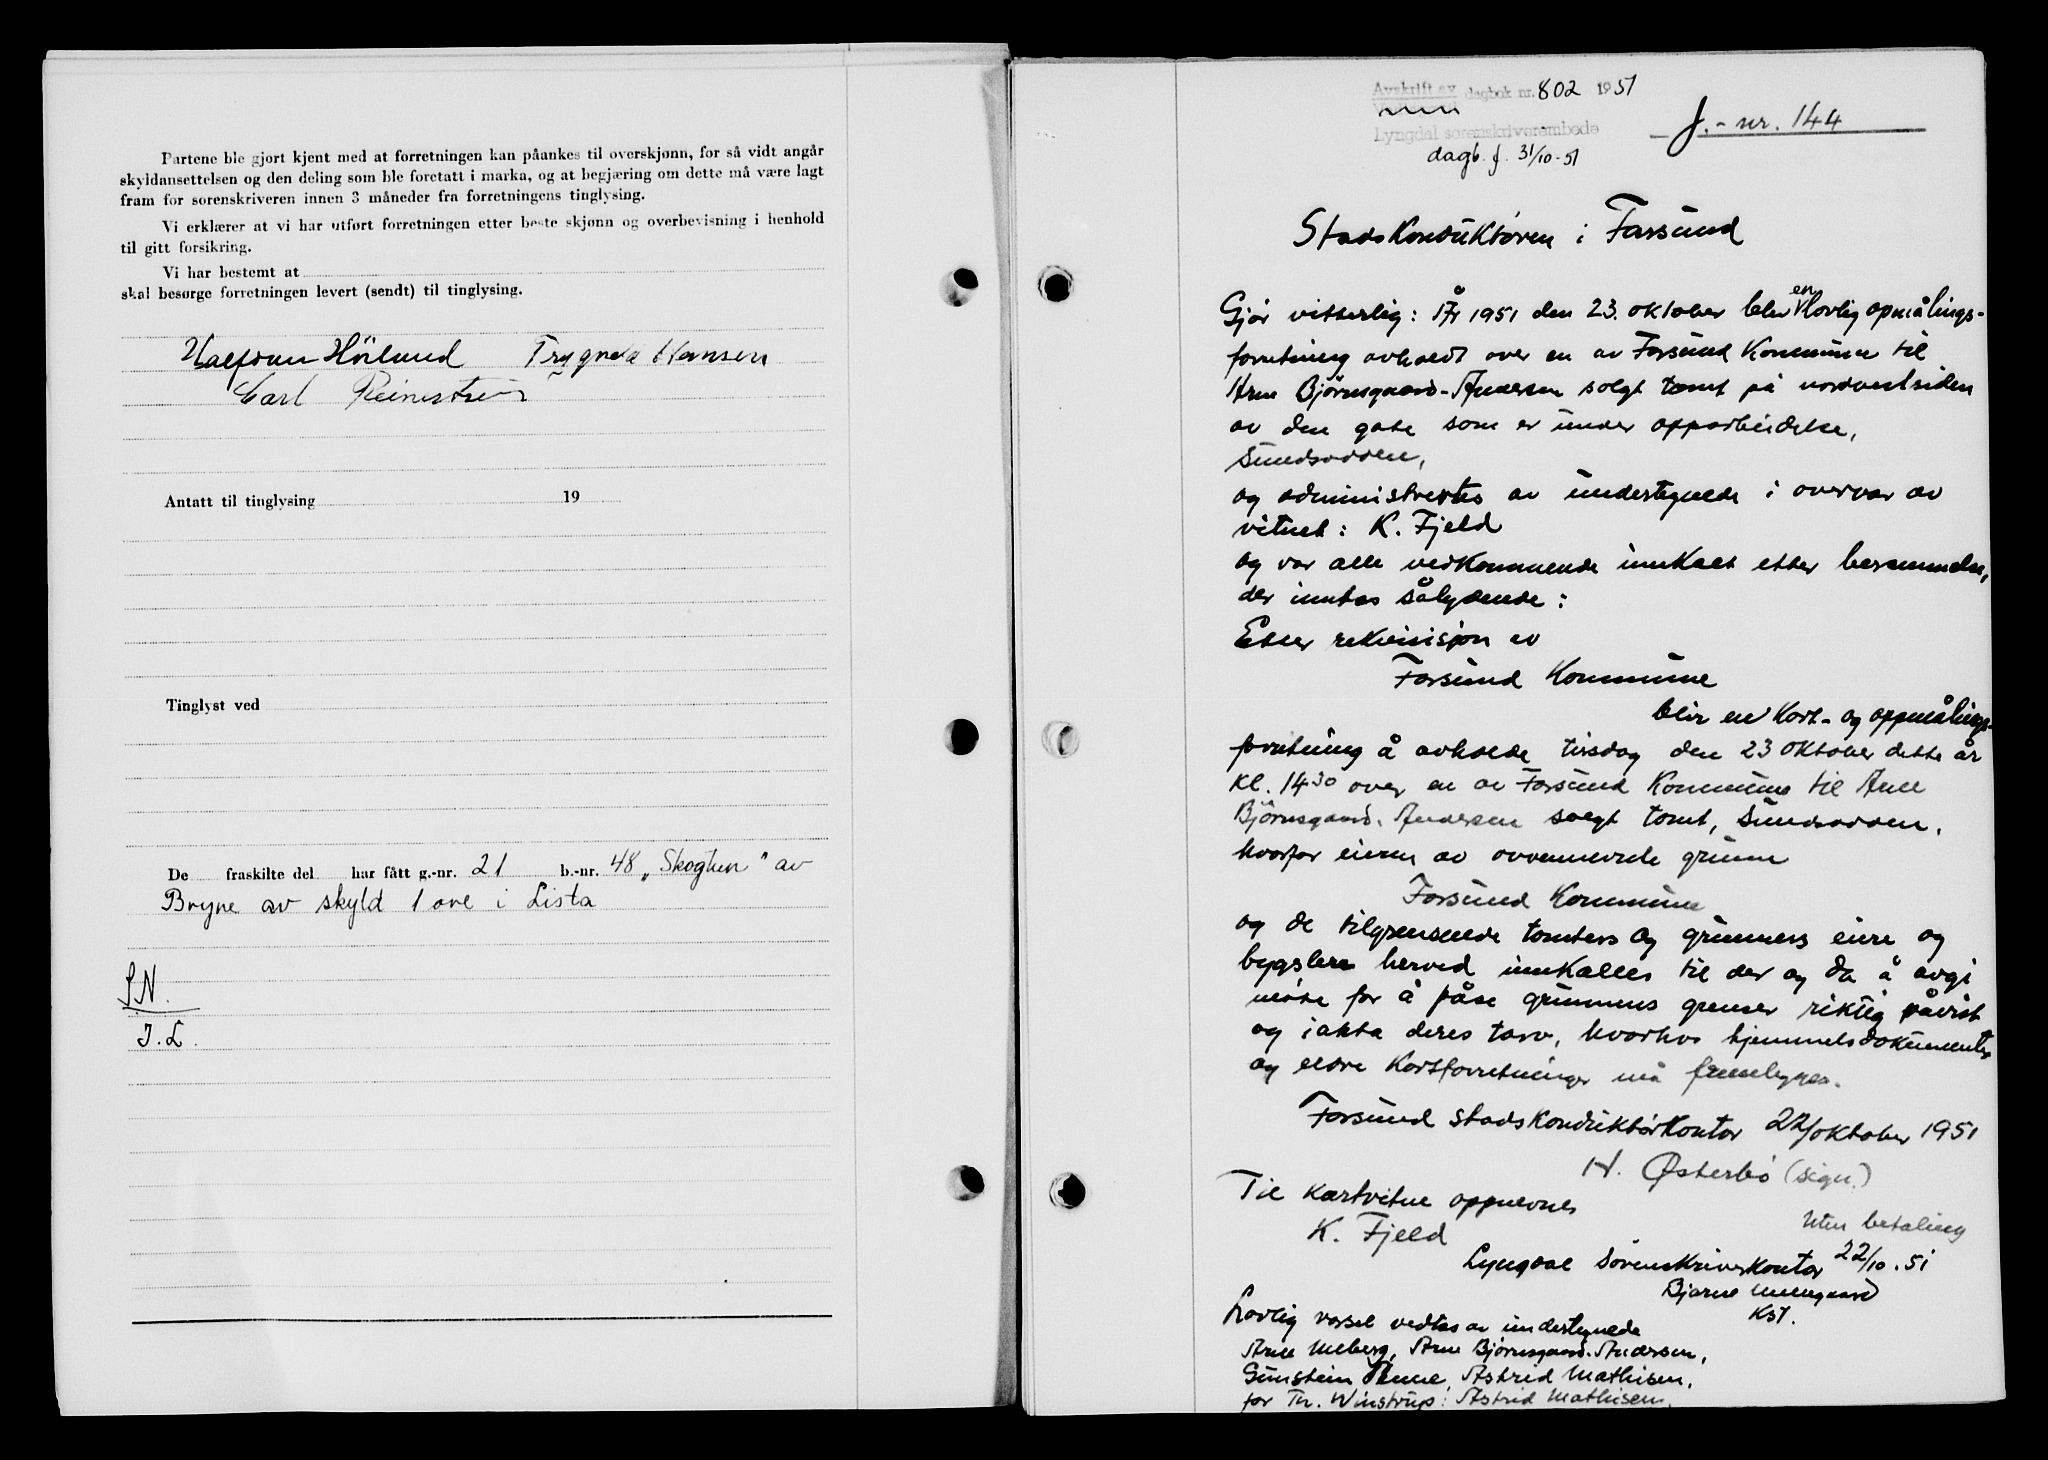 Partene ble gjort kjent med at forretningen kan påankes til overskjønn, for så vidt angår
skyldansettelsen og den deling som ble foretatt i marka, og at begjæring om dette må være lagt
fram for sorenskriveren innen 3 måneder fra forretningens tinglysing.
Vi erklærer at vi har utført forretningen etter beste skjønn og overbevisning i henhold
til gitt forsikring.
Vi har bestemt at
skal besørge forretningen levert (sendt) til tinglysing.
Halfdan Hörlund Trygve Hansen
Carl
Antatt til tinglysing 19
Tinglyst ved
De fraskilte del har fått g.-nr. 21 b.-nr. 48 „Skoglun" av
Bryne av skyld 1 øre i Lista
SN.
J.L.
Avskrift av dagbok nr. 802 1951
Lyngdal sorenskriverembede
dagb. f. 31/10-51
J.-nr. 144
Stadskonduktøren i Farsund
Gjør vitterlig: År 1951 den 23. oktober blev en lovlig opmålings-
forretning avholdt over en av Farsund Kommune til
Arne Bjørnsgaard-Andersen solgt tomt på nordvestsiden
av den gate som er under opparbeidelse,
Sundsodden,
og administrertes av undertegnede i overvær av
vitnet: K. Fjeld
og var alle vedkommende innkalt etter berammelse,
der inntas sålydende:
Etter rekvisisjon av
Farsund Kommune
blir en kart- og oppmålings-
forretning å avholde tirsdag den 23 oktober dette år
kl. 14 30 over en av Farsund Kommune til Arne
Bjørnsgaard-Andersen solgt tomt, Sundsodden,
hvorfor eieren av ovennevnte grunn
Farsund Kommune
og de tilgrensende tomters og grunners eiere og
bygslere herved innkalles til der og da å avgi
møte for å påse grunnens grenser riktig påvist
og iakta deres tarv, hvorhos hjemmelsdokumenter
og eldre kartforretninger må fremlegges.
Farsund stadskonduktørkontor 22/oktober 1951
H. Østerbø (sign.)
Til kartvitne oppnevnes
K. Fjeld
Uten betaling
Lyngdal Sorenskriverkontor 22/10.51
Bjarne
Kst.
Lovlig varsel vedtas av undertegnede
Arne Meberg, Arne Bjørnsgaard-Andersen,
Gunstein Penne, Astrid Mathisen,
for Th. Winstrup: Astrid Mathisen.